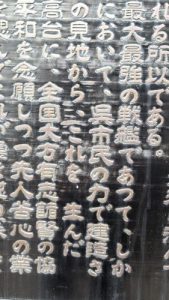 れる所以である。
最大最強の戦艦であつて、しか
において、呉市民の力で建造さ
の見地から、これを 生んだ
高台に 全国大方有志諸賢の協
平和を念願しつつ先人苦心の業